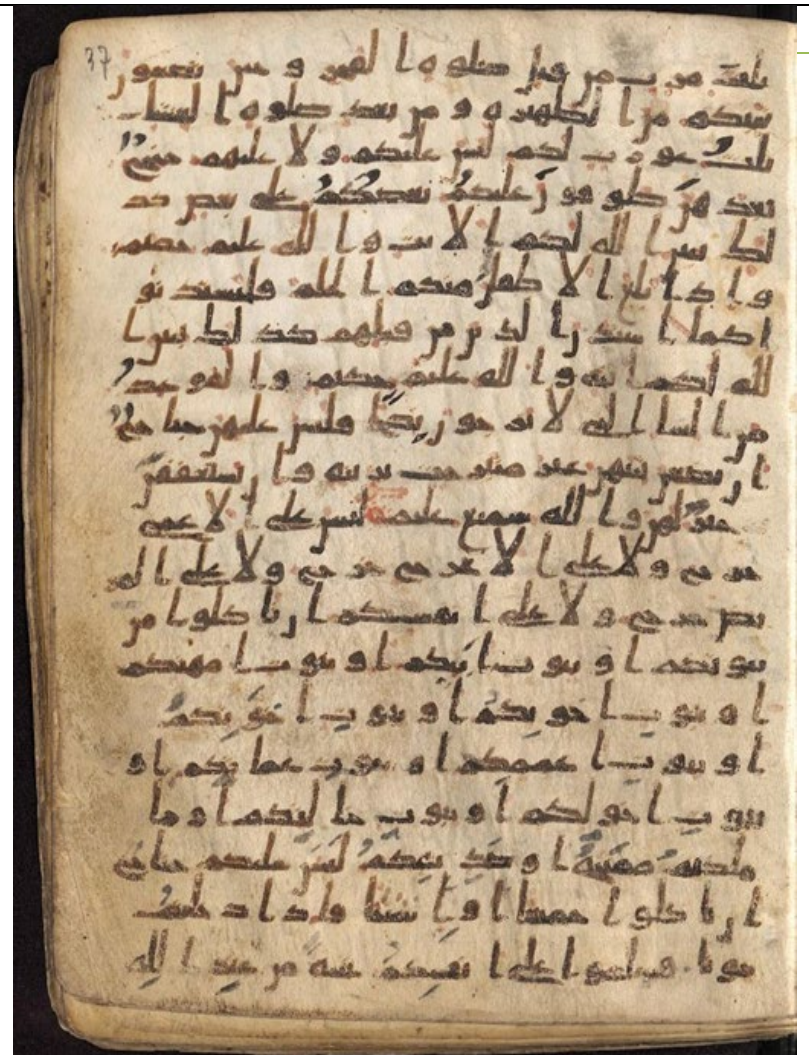 37
ثلث مرت من قبل صلوه الفجر وحين تضعون
ثيبكم من الظهيره ومن بعد صلوه العشا
ثلث عورت لكم ليس عليكم ولا عليهم جنح
بعدهن طوفون عليكم بعضكم على بعض كذ
لك يبين الله لكم الايت والله عليم حكيم
واذا بلغ الاطفل منكم الحلم فليستذنو
ا كما استذن الذين من قبلهم كذلك يبين ا
لله لكم ايته والله عليم حكيم والقوعد
من النسا التي لا يرجون نكحا فليس عليهن جناح
ان يضعن ثيبهن غير متبرجت بزينه وان يستعففن
خير لهن والله سميع عليم ليس على الاعمى
حرج ولا على الاعرج حرج ولا على المر
يض حرج ولا على انفسكم ان تاكلوا من
بيوتكم او بيوت ابايكم او بيوت امهتكم
او بيوت اخونكم او بيوت اخوتكم
او بيوت عممكم او بيوت عماتكم او
بيوت اخولكم او بيوت خالتكم او ما
ملكتم مفتحه او صديقكم ليس عليكم جناح
ان تاكلوا جميعا او اشتتا فاذا دخلتم
بيوتا فسلموا على انفسكم تحيه من عند الله